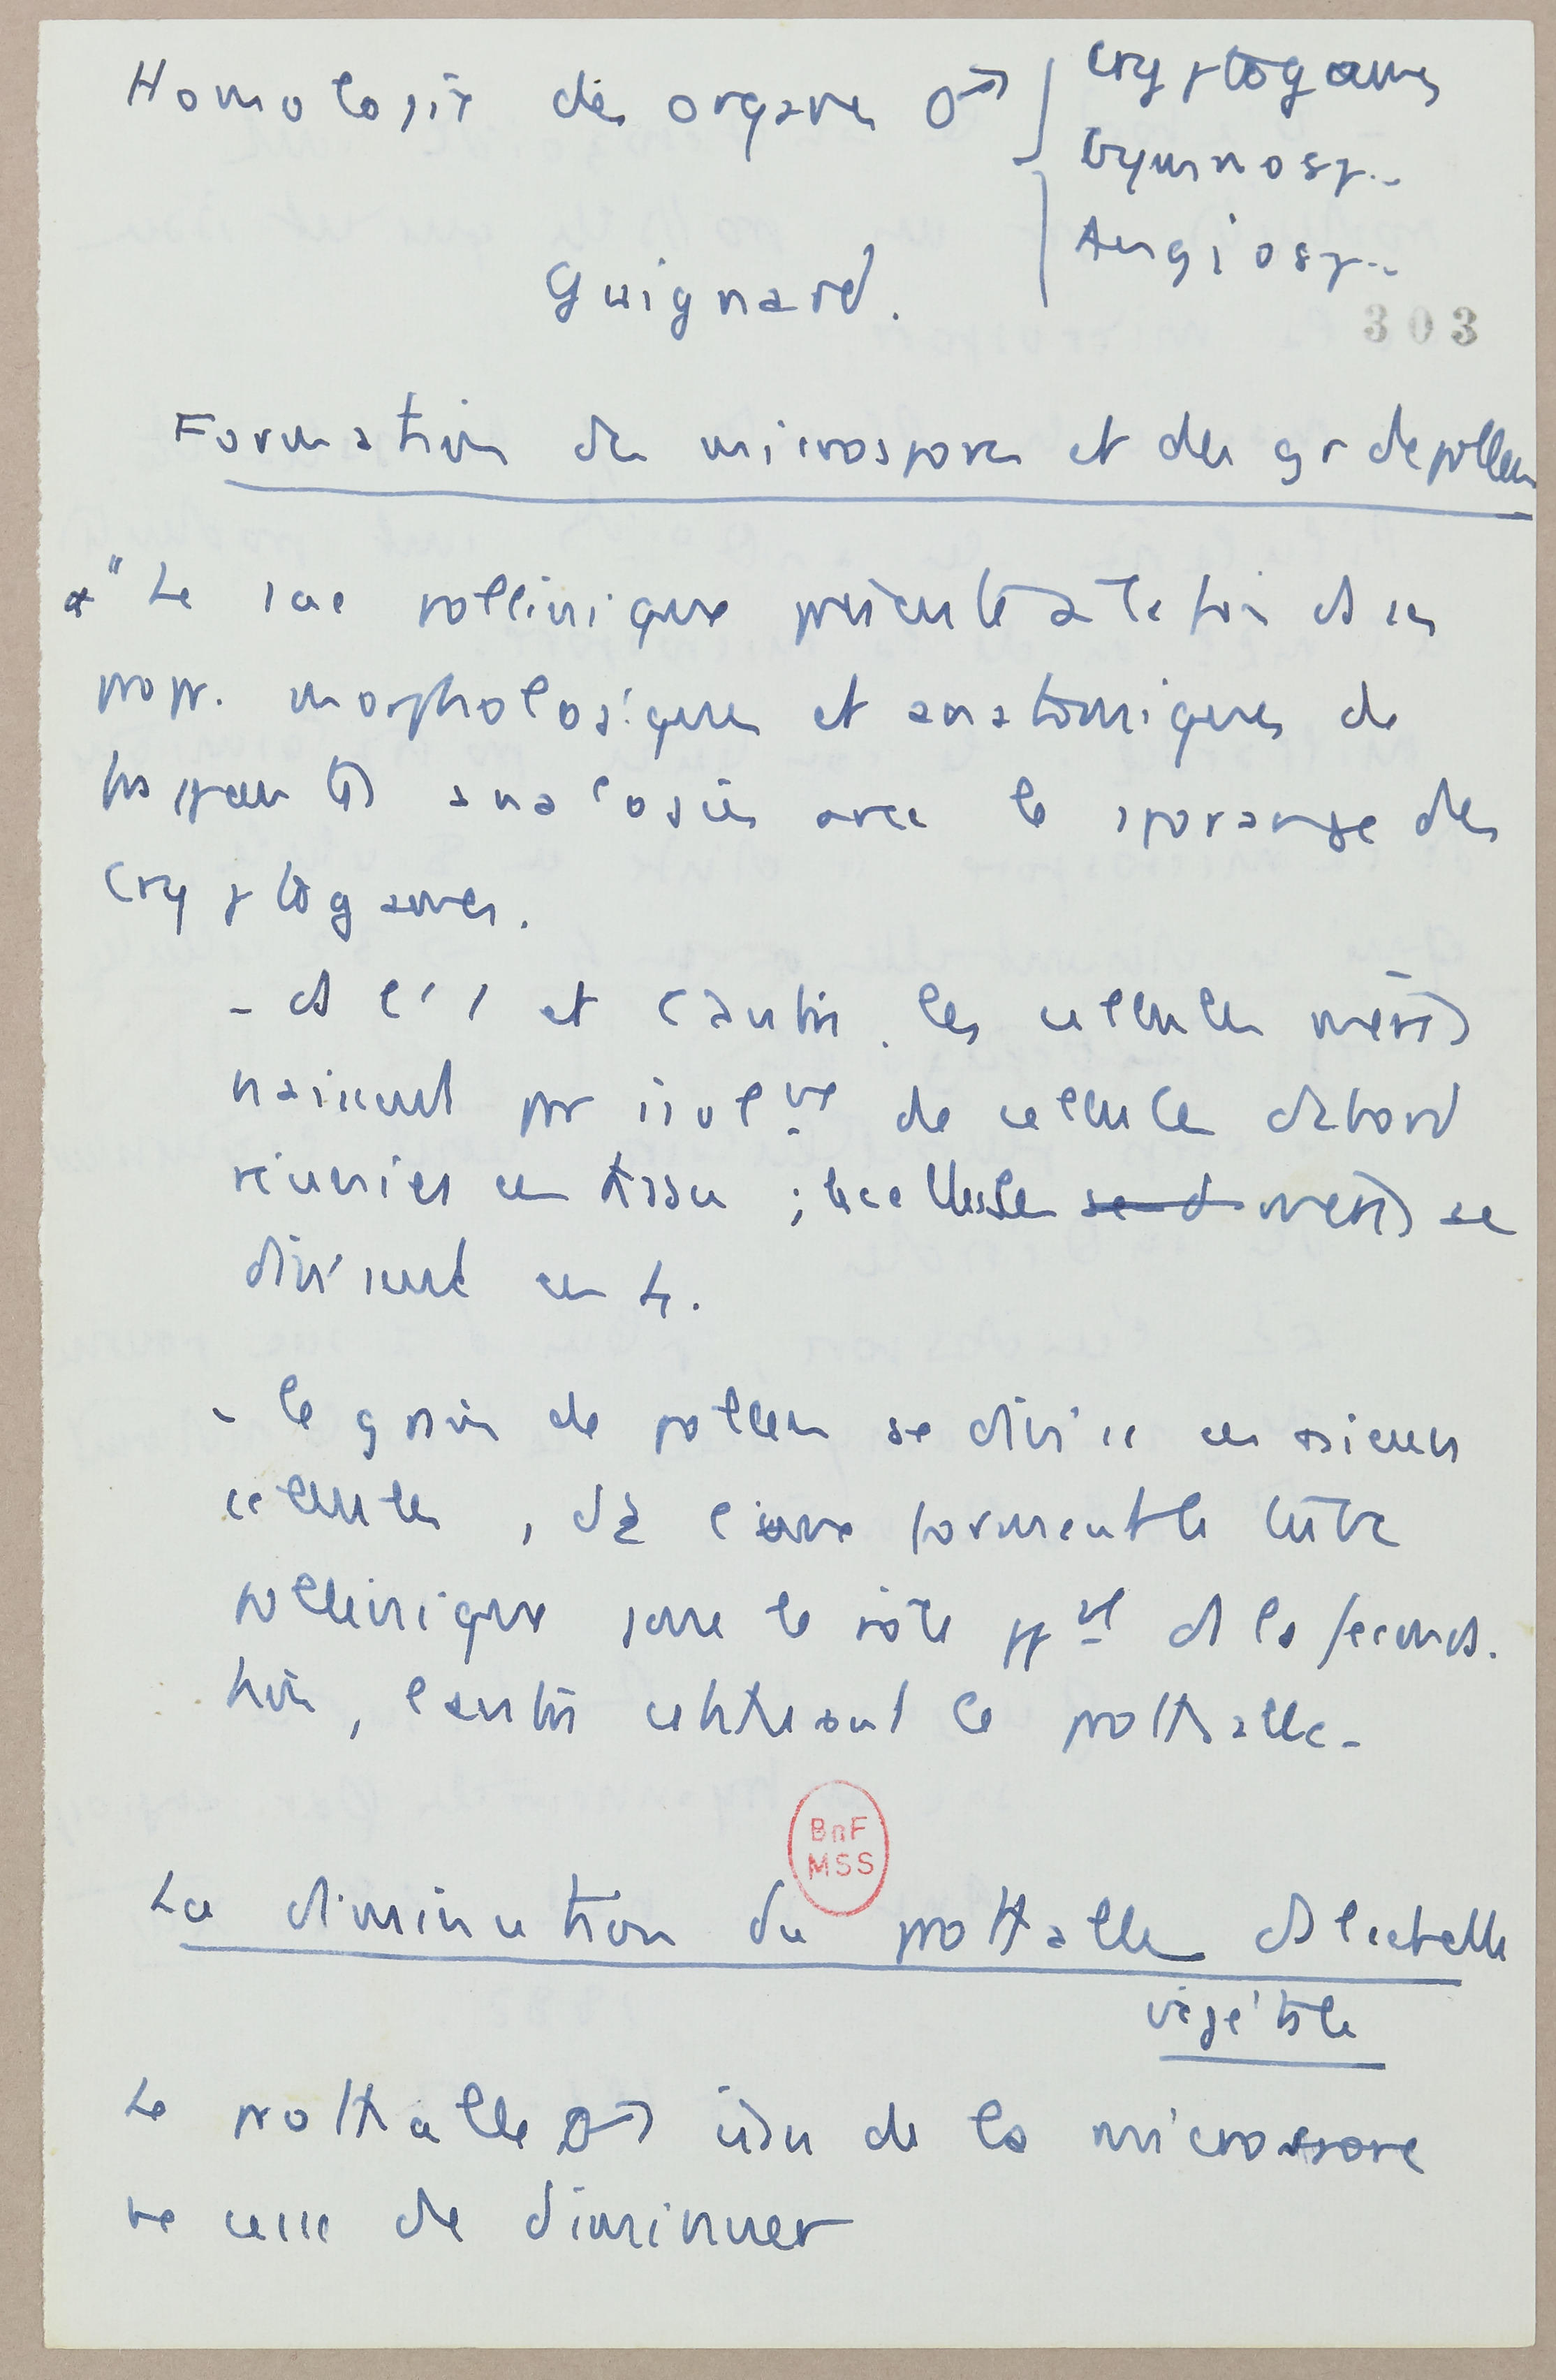 Homologie des organes ♂ { Cryptogames
Gymnosp..
Angiosp..
Guignard.
303
Formation des microspores et des gr de pollen
" Le sac pollinique présente à la fois ds ses
propr. morphologiques et anatomiques de
frappantes analogies avec le sporange des
Cryptogames.
- ds l'1 et l'autre. les cellules mères
naissent par isolvt de cellules d'abord
réunies en tissu ; les cellules mères se
divisent en 4.
- le grain de pollen se divise en
cellules, dt l'une formant le tube
pollinique joue le rôle ppal ds la féconda.
tion, l'autre constituant le prothalle -
BnF
MSS
La diminution du prothalle ds l'échelle
végétale
Le prothalle ♂ issu de la microspore
ne cesse de diminuer